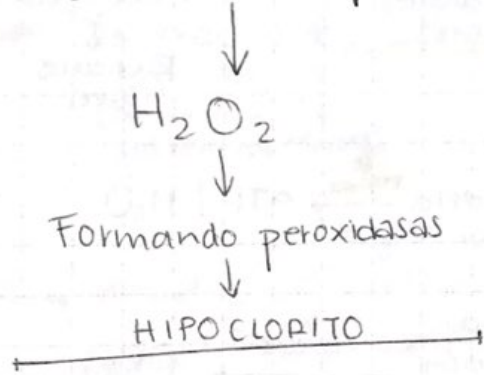 H₂O₂
Formando peroxidasas
HIPOCLORITO